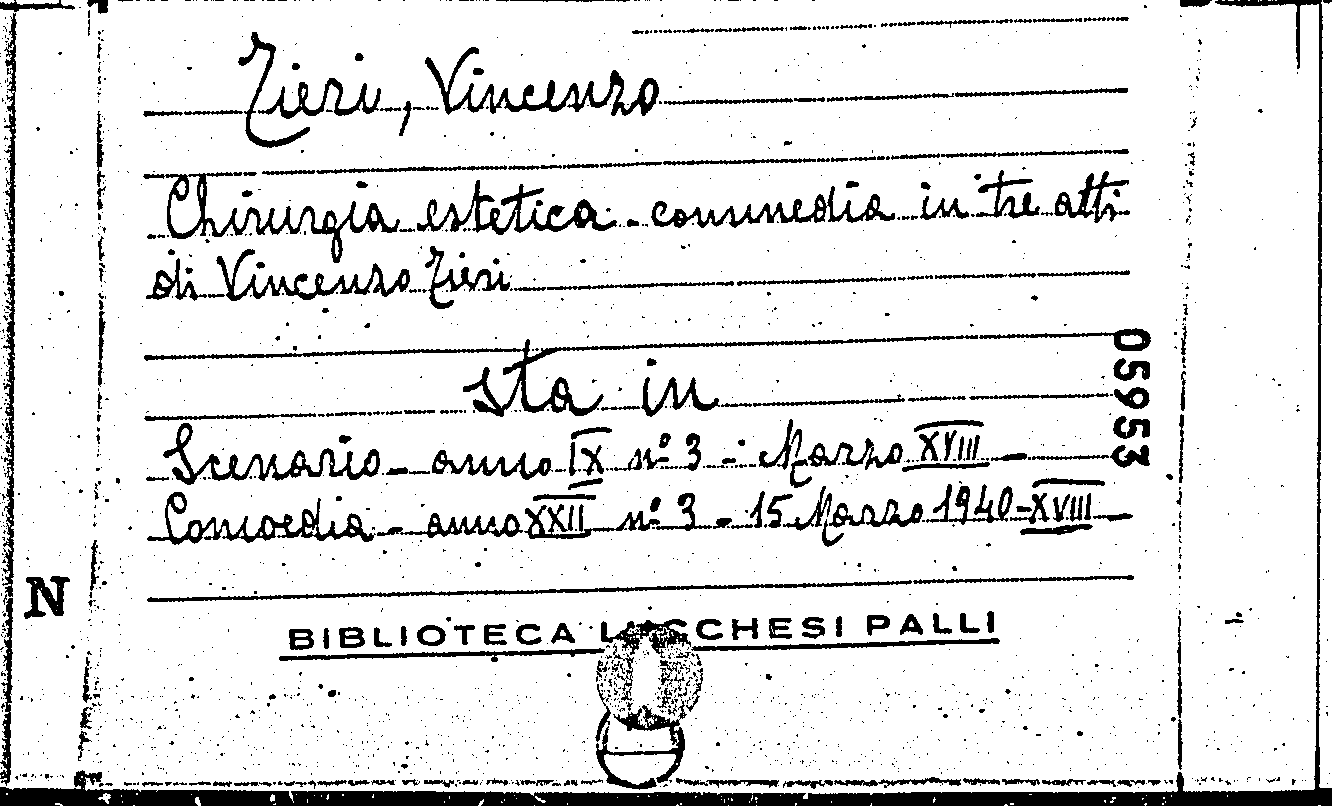 Tieri, Vincenzo
Chirurgia estetica - commedia in tre atti
di Vincenzo Tieri
sta in
Scenario - anno IX n° 3 - Marzo XVIII -
Comoedia - anno XXII n° 3 - 15 Marzo 1940-XVIII -
05953
N
BIBLIOTECA LUCCHESI PALLI